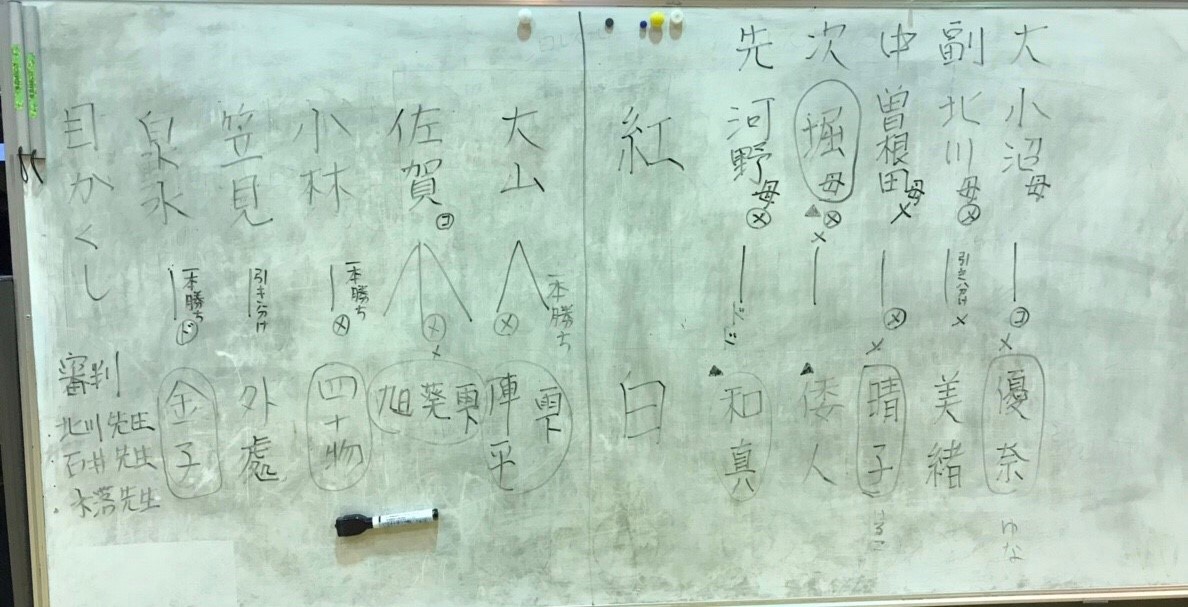 大 小沼母
優奈
ゆな
コ
×
副 北川母
メ
引き分け
×
美緒
中 曽根田母
×
メ
×
晴子
はるこ
次 堀母
▲メ
×
▲
倭人
先 河野母
メ
▲
和真
紅
白
大山
メ
一本勝ち
陣平
雫
佐賀
コ
メ
×
旭 葵 雫
小林
一本勝ち
メ
四十物
笠見
引き分け
外處
泉水
一本勝ち
ド
金子
目かくし
審判
・北川先生
・石井先生
・水落先生